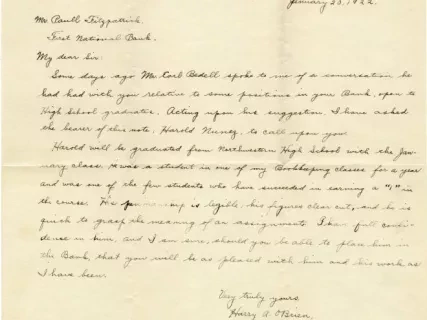 January 23, 1922.
Mr Paull Fitzpatrick.
First National Bank.
My dear Sir:
Some days ago Mr. Karl Bedell spoke to me of a conversation he
had had with you relative to some positions in your Bank, open to
High School graduates. Acting upon his suggestion, I have asked
the bearer of this note, Harold Nunez, to call upon you.
Harold will be graduated from Northwestern High School with the Jan-
uary class. He was a student in one of my Bookkeeping classes for a year
and was one of the few students who have succeeded in earning a "1" in
the course. His penmanship is legible, his figures clear cut, and he is
quick to grasp the meaning of an assignment. I have full confi-
dence in him, and I am sure, should you be able to place him in
the Bank, that you will be as pleased with him and his work as
I have been.
Very truly yours,
Harry A. O'Brien,